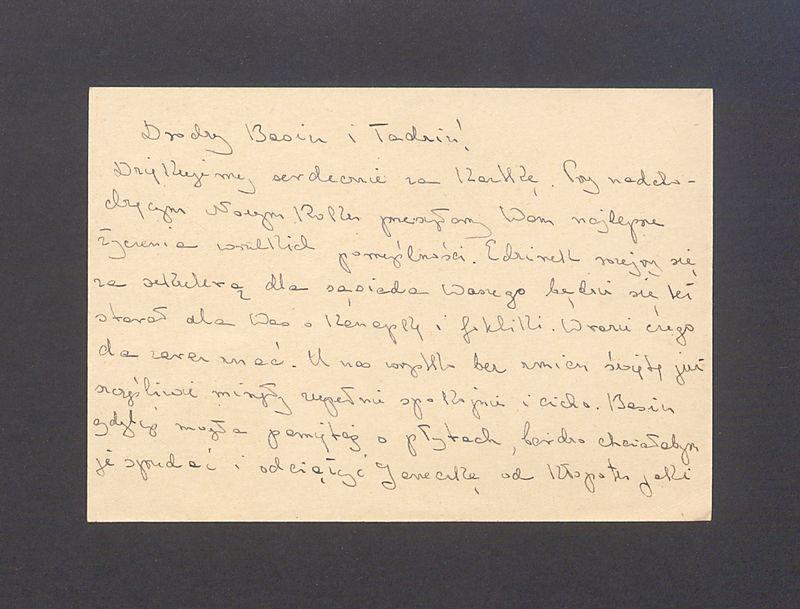 Drodzy Basiu i Tadziu!
Dziękujemy serdecznie za kartkę. Przy nadcho-
dzącym Nowym Roku przesyłamy Wam najlepsze
życzenia wszelkich pomyślności. Edzinek zajmy się
za sekulerą dla sąsiada Waszego będzie się też
starał dla Was o kanapkę i foteliki. W razie czego
da zaraz znać. U nas wszystko bez zmian święta już
szczęśliwie minęły zupełnie spokojnie i cicho. Basiu
gdybyś mogła pamiętaj o płytach, bardzo chciałabym
je sprzedać i odciążyć Janeczkę od kłopotu jaki